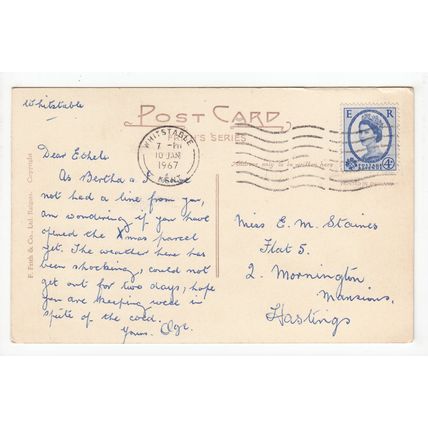 Whitstable
POST CARD
FRITH'S SERIES
WHITSTABLE
7 - PM
10 JAN
1967
KENT
E R
POSTAGE
REVENUE
4D
Address only to be written here
F. Frith & Co., Ltd. Reigate. Copyright
Dear Ethel.
As Bertha & I have
not had a line from you,
am wondering if you have
opened the Xmas parcel
yet. The weather here has
been shocking, could not
get out for two days, hope
you are keeping well in
spite of the cold.
Yours.
Miss E. M. Staines
Flat 5.
2. Mornington
Mansions,
Hastings